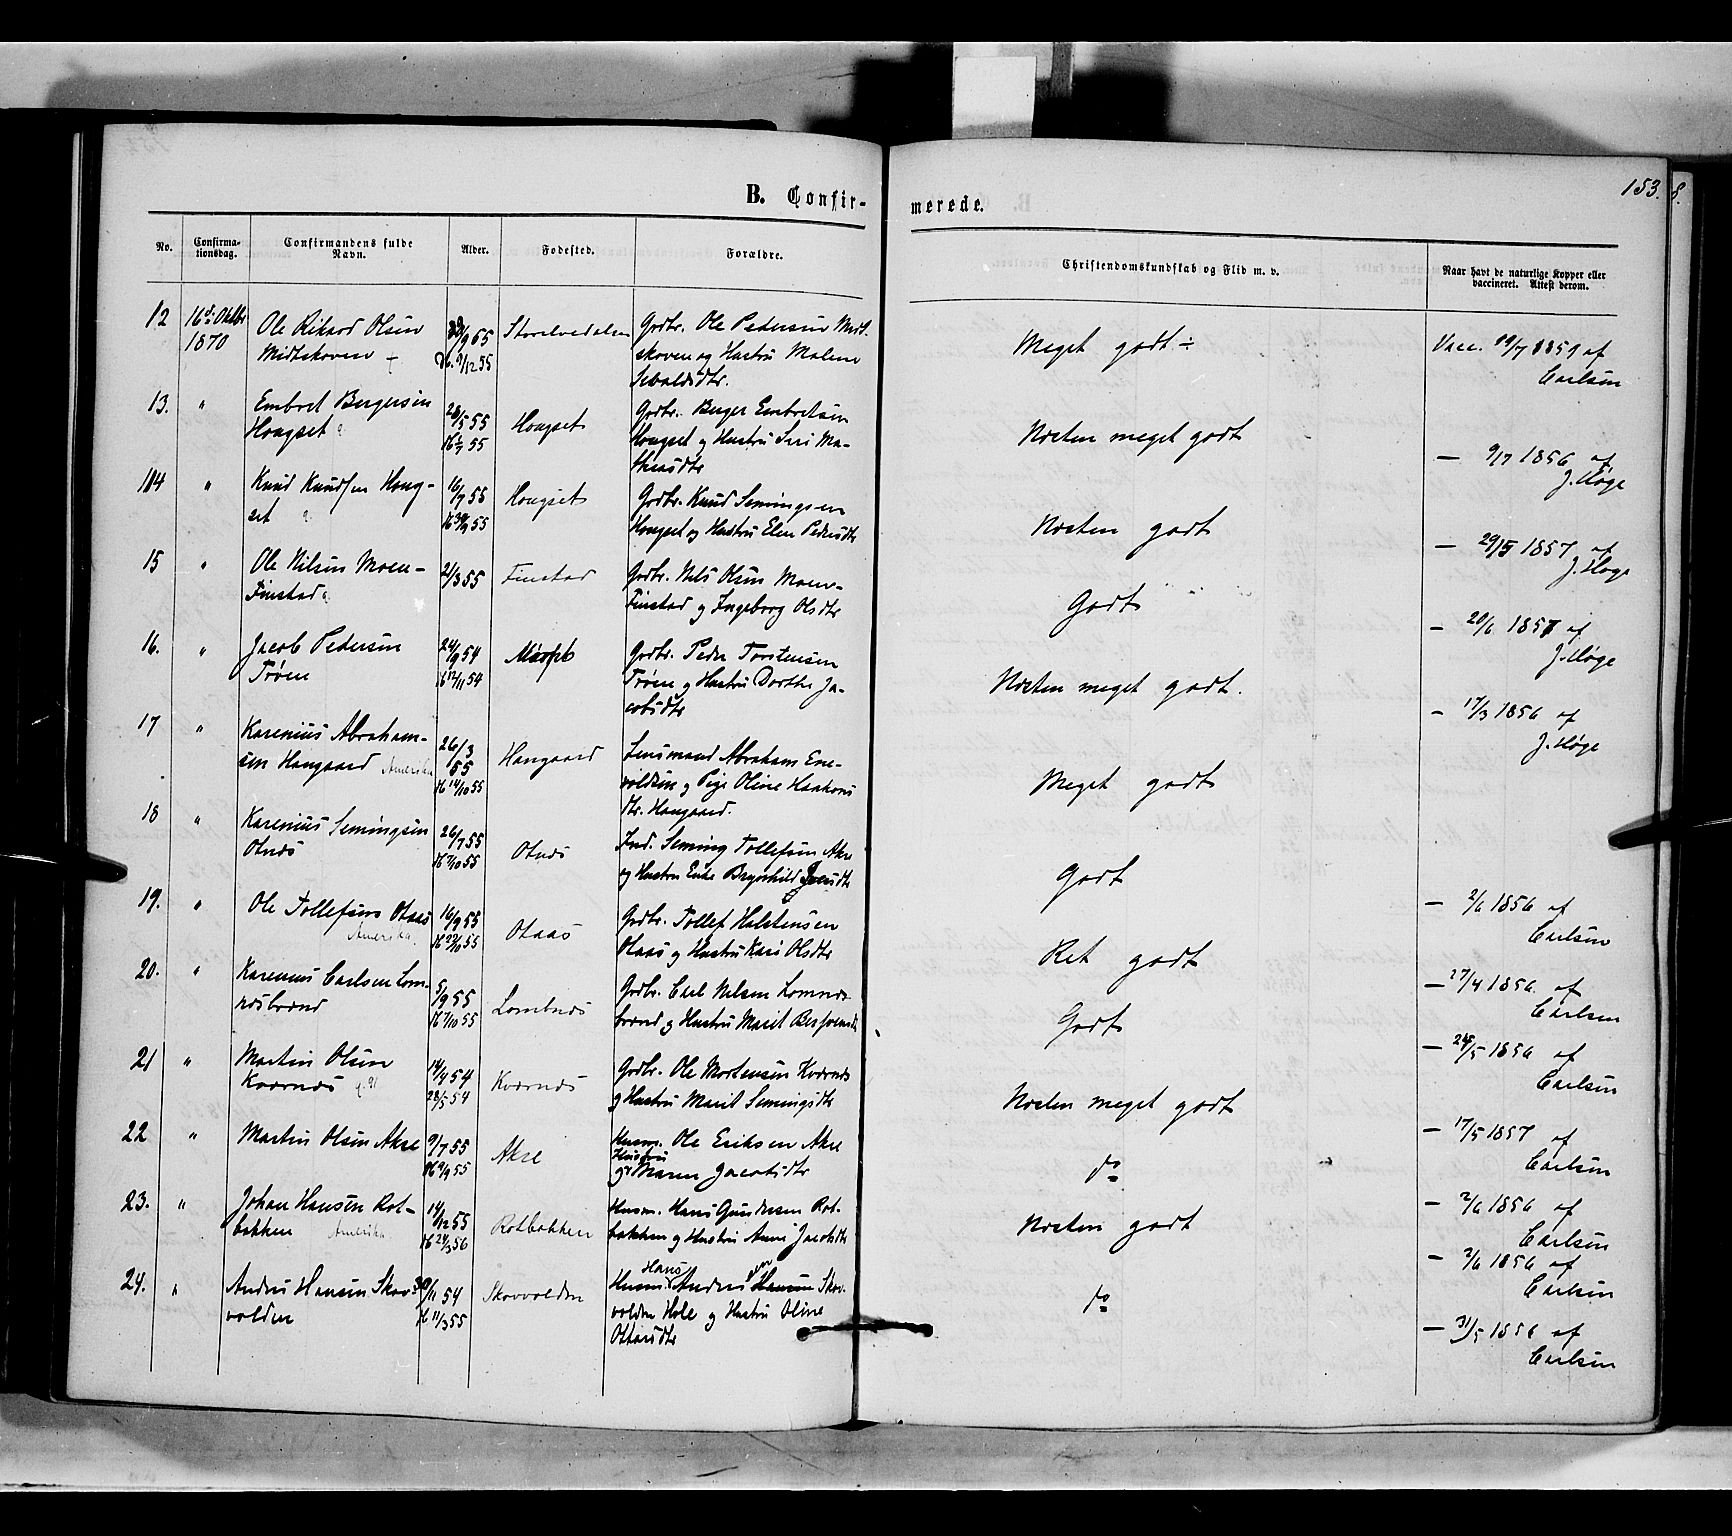 153.
8.
B. Confir-
merede.
No.
Confirma-
tionsdag.
Confirmandens fulde
Navn.
Alder.
Fodested.
Forældre.
Christendomskundskab og Flid m. v.
Naar havt de naturlige Kopper eller
vaccineret. Attest derom.
12
16de Oktbr
1870
Ole Rikard Olsen
Midtskoven
9/9 55
9/12 55
Storelvedalen
Grdbr. Ole Pedersen Midt-
skoven og Hustru Malene
Sevaldsdtr.
Meget godt ÷
Vacc. 19/7 1859 af
Carlsen
13.
"
Embret Bergersen
Hougset
28/5 55
55
Hougset
Grdbr. Berger Embretsen
Hougset og Hustru Siri Ma-
thiasdtr
Næsten meget godt
— 9/7 1856 af
J. Høge
14
"
Knud Knudsen Houg-
set
16/7 55
55
Hougset
Grdbr. Knud Semingsen
Hougset og Hustru Elen Pedersdtr
Næsten godt
— 29/5 1857 af
J. Høge
15
"
Ole Nilsen Moen-
Finstad
21/3 55
Finstad
Grdbr. Nils Olsen Moen-
Finstad og Ingeborg Olsdtr
Godt
— 20/6 1857 af
J. Høge
16.
"
Jacob Pedersen
Trøen
24/9 54
12/11 54
Grdbr. Peder Torstensen
Trøen og Hustru Dorthe Ja-
cobsdtr
Næsten meget godt.
— 17/3 1856 af
J. Høge
17
"
Karenius Abraham-
sen Haugaard Amerika
26/3
55
14/10 55
Haugaard
Lensmand Abraham Ene-
voldsen og Pige Oline Haakons
dtr. Haugaard.
Meget godt
18
"
Karenius Semingsen
Otnæs
26/7 55
7/10 55
Otnæs
Ind. Seming Tollefsen Akre
og Hustru Enke Brynhild Iversdtr
Godt
— 2/6 1856 af
Carlsen
19.
"
Ole Tollefsen Otaas
Amerika.
16/9 55
55
Otaas
Grdbr. Tollef Halstensen
Otaas og Hustru Kari Olsdtr
Ret godt
— 27/4 1856 af
Carlsen
20.
"
Karenus Carlsen Lom-
næsbrænd
5/9 55
7/10 55
Lombnæs
Grdbr. Carl Nilsen Lomnæs-
brænd og Hustru Marit
Godt
— 24/5 1856 af
Carlsen
21
"
Martin Olsen
Kværnæs
14/4 54
28/5 54
Kværnæs
Grdbr. Ole Mortensen Kværnæs
og Hustru Marit Semingsdtr
Næsten meget godt
— 17/5 1857 af
Carlsen
22
"
Martin Olsen Akre
9/7 55
9/9 55
Akre
Husm. Ole Eriksen Akre
Hustru
og Maren Jacobsdtr
do
— 2/6 1856 af
Carlsen
23.
"
Johan Hansen Rot-
bakken Amerika
14/12 55
24/3 56
Rotbakken
Husm. Hans Gundersen Rot-
bakken og Hustru Anne Jacobsdtr
Næsten godt
— 3/6 1856 af
Carlsen
24.
"
Anders Hansen Skov-
volden
30/11 54
11/3 55
Skovvolden
Hans sen
Husm. Anders Hansen Skov-
volden Hole og Hustru Oline
Ottarsdtr
do
— 31/5 1856 af
Carlsen